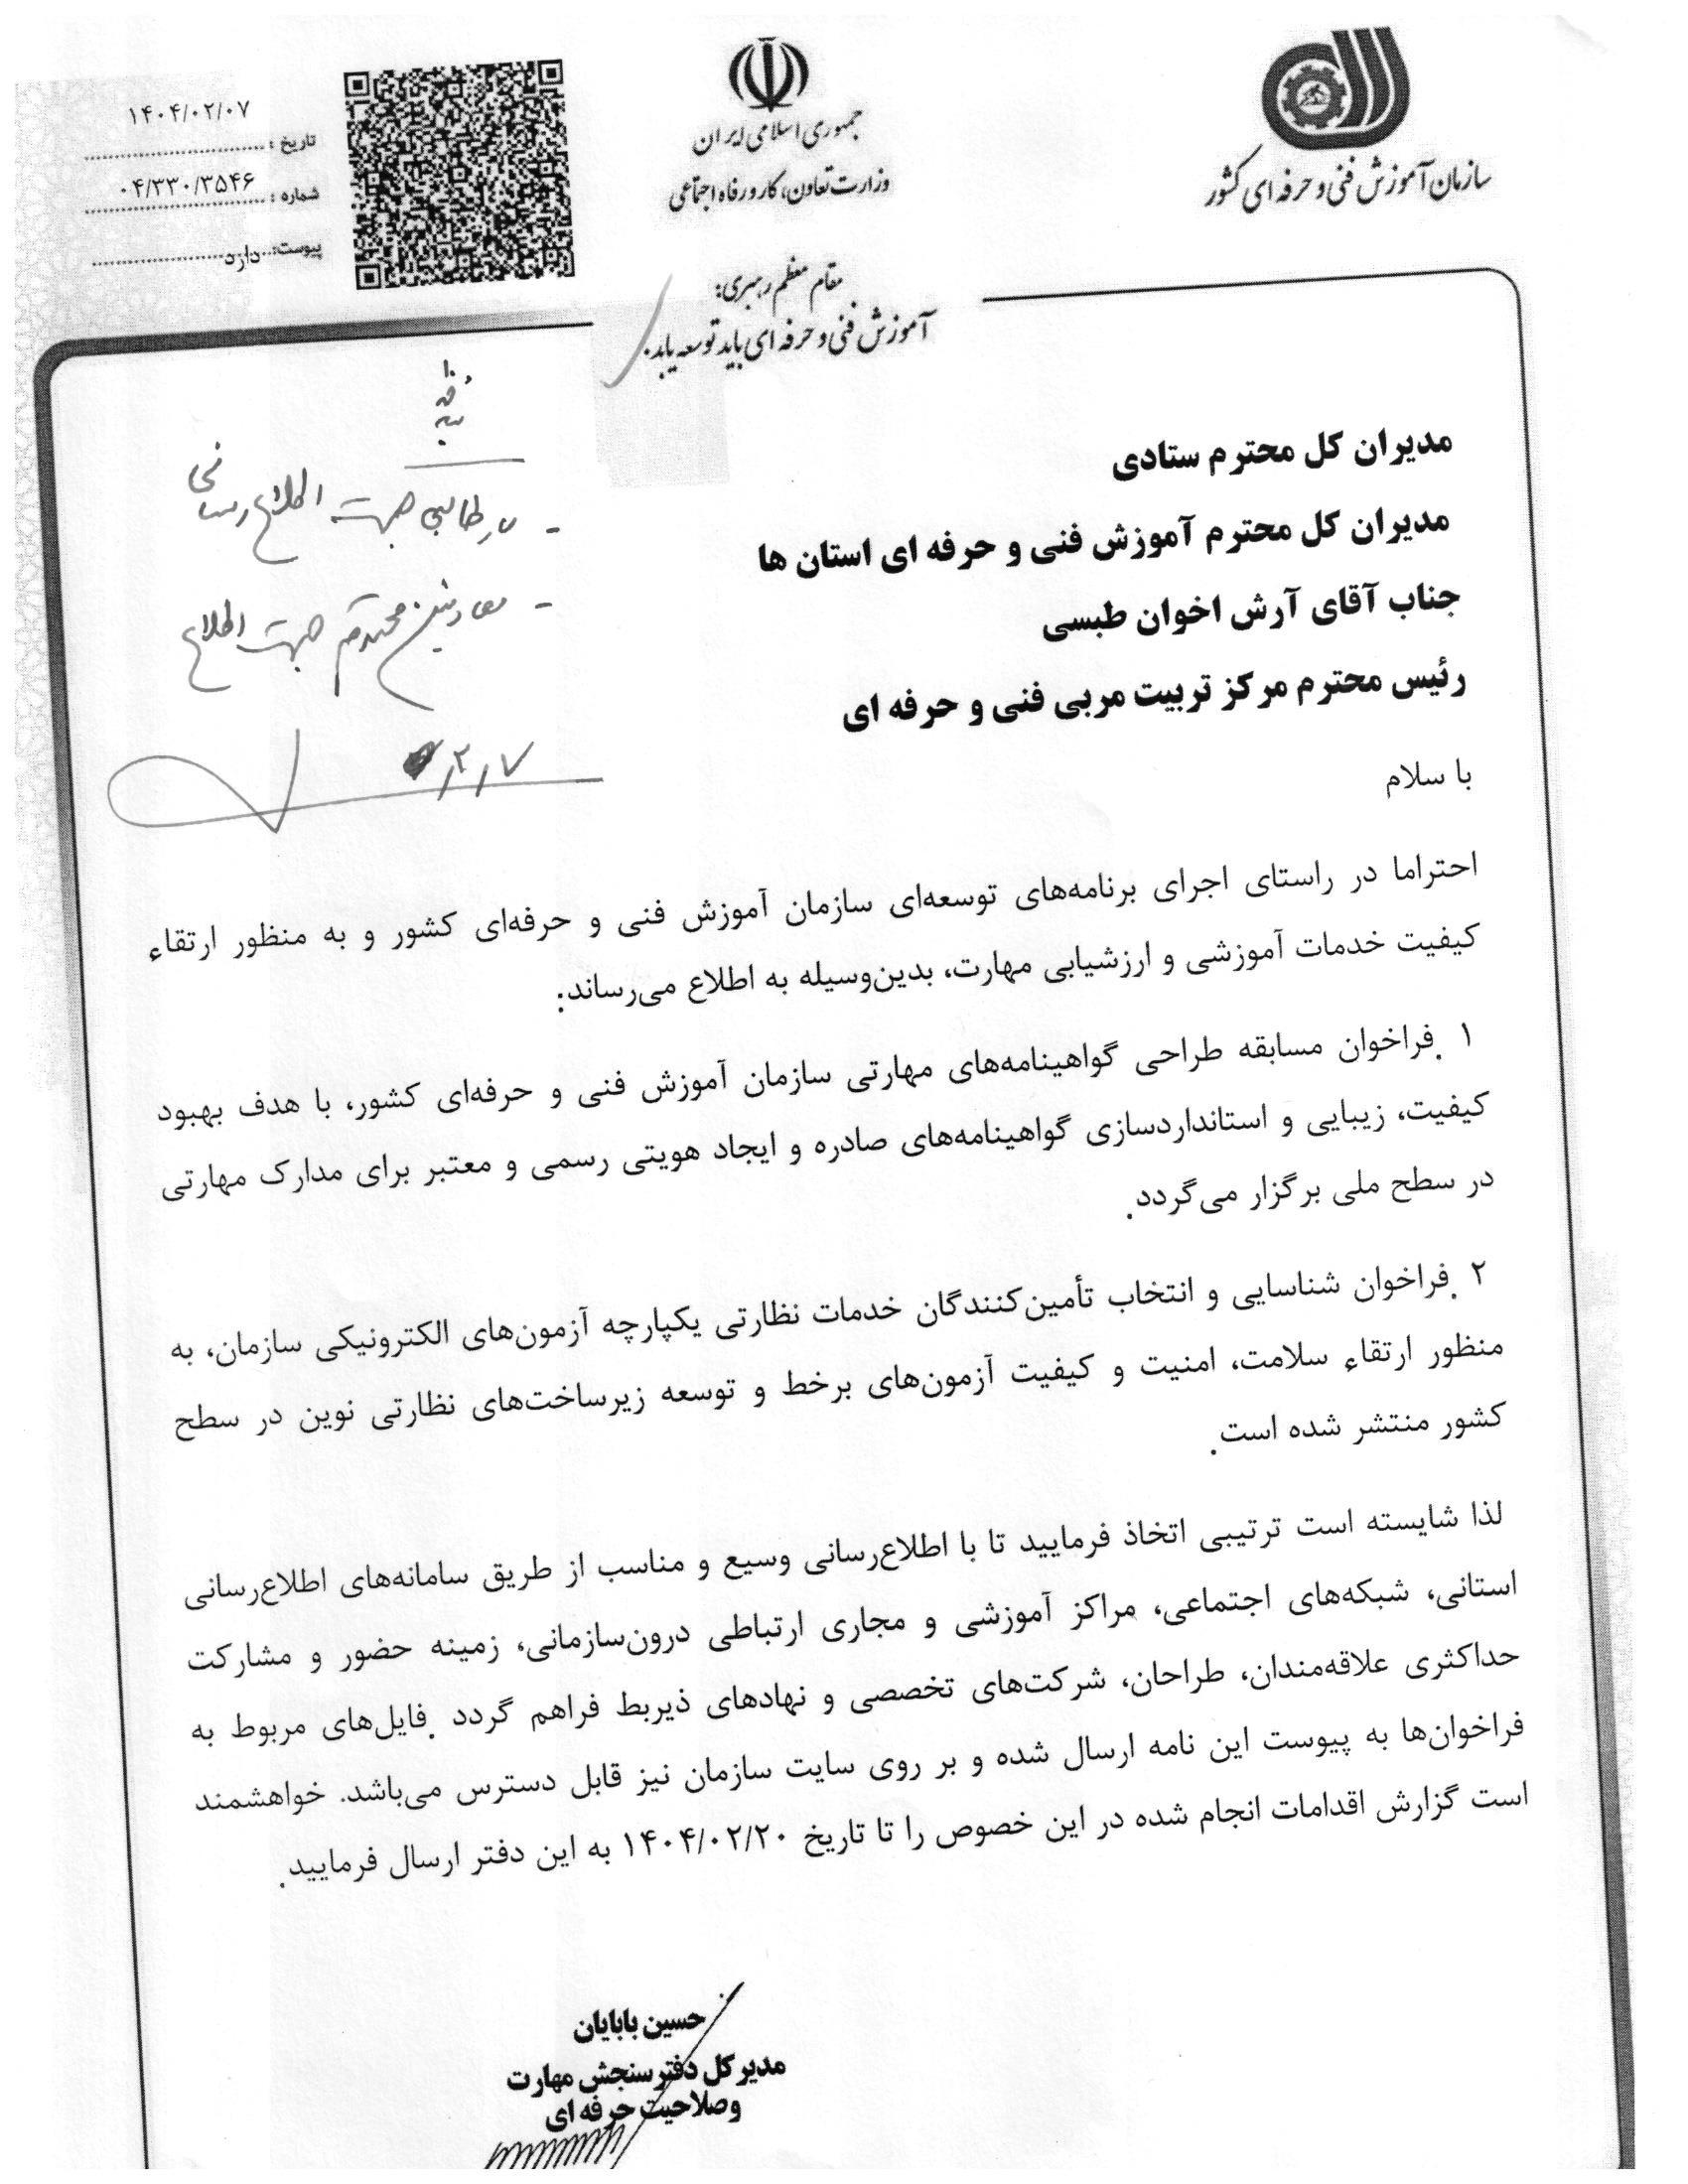 سازمان آموزش فنی و حرفه ای کشور
جمهوری اسلامی ایران
وزارت تعاون، کار و رفاه اجتماعی
۱۴۰۴/۰۲/۰۷
تاریخ :
۰۴/۳۳۰/۳۵۴۶
شماره :
پیوست: دارد
مقام معظم رهبری:
آموزش فنی و حرفه ای باید توسعه یابد.
مدیران کل محترم ستادی
مدیران کل محترم آموزش فنی و حرفه ای استان ها
جناب آقای آرش اخوان طبسی
رئیس محترم مرکز تربیت مربی فنی و حرفه ای
جهت اطلاع رسانی
- معاونین محترم جهت اطلاع
با سلام
احتراما در راستای اجرای برنامه‌های توسعه‌ای سازمان آموزش فنی و حرفه‌ای کشور و به منظور ارتقاء
کیفیت خدمات آموزشی و ارزشیابی مهارت، بدین‌وسیله به اطلاع می‌رساند:
۱ .فراخوان مسابقه طراحی گواهینامه‌های مهارتی سازمان آموزش فنی و حرفه‌ای کشور، با هدف بهبود
کیفیت، زیبایی و استانداردسازی گواهینامه‌های صادره و ایجاد هویتی رسمی و معتبر برای مدارک مهارتی
در سطح ملی برگزار می‌گردد.
۲ .فراخوان شناسایی و انتخاب تأمین‌کنندگان خدمات نظارتی یکپارچه آزمون‌های الکترونیکی سازمان، به
منظور ارتقاء سلامت، امنیت و کیفیت آزمون‌های برخط و توسعه زیرساخت‌های نظارتی نوین در سطح
کشور منتشر شده است.
لذا شایسته است ترتیبی اتخاذ فرمایید تا با اطلاع‌رسانی وسیع و مناسب از طریق سامانه‌های اطلاع‌رسانی
استانی، شبکه‌های اجتماعی، مراکز آموزشی و مجاری ارتباطی درون‌سازمانی، زمینه حضور و مشارکت
حداکثری علاقه‌مندان، طراحان، شرکت‌های تخصصی و نهادهای ذیربط فراهم گردد .فایل‌های مربوط به
فراخوان‌ها به پیوست این نامه ارسال شده و بر روی سایت سازمان نیز قابل دسترس می‌باشد. خواهشمند
است گزارش اقدامات انجام شده در این خصوص را تا تاریخ ۱۴۰۴/۰۲/۲۰ به این دفتر ارسال فرمایید.
حسین بابایان
مدیر کل دفتر سنجش مهارت
و صلاحیت حرفه ای